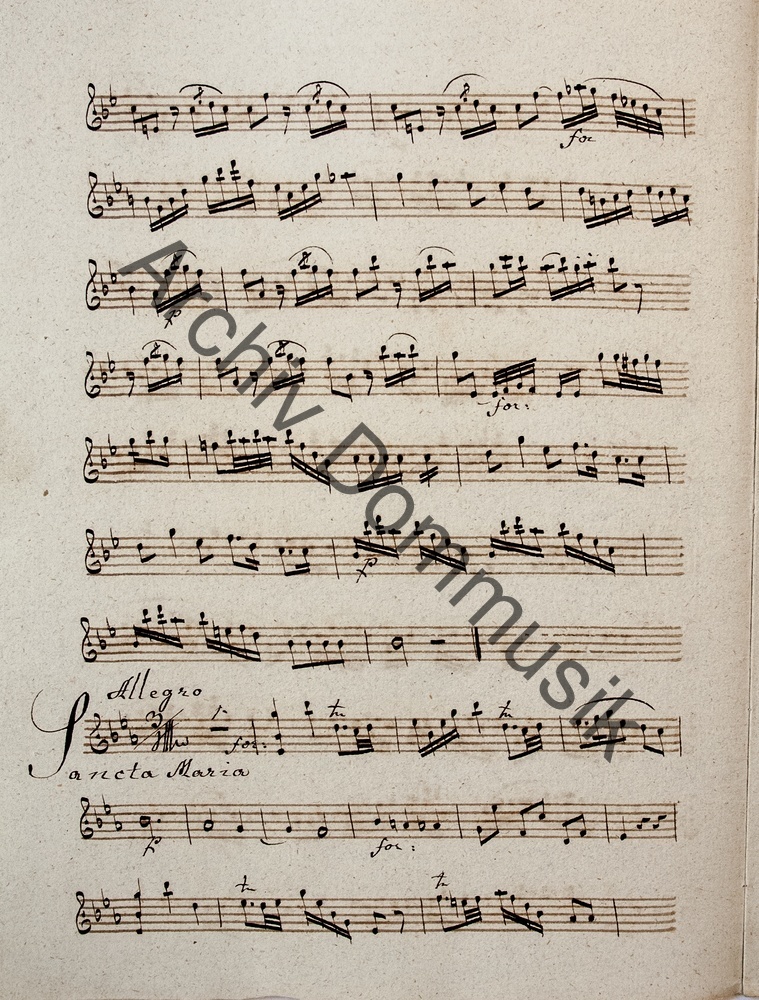 for
p
for:
p
Allegro
tr tr
for:
Sancta Maria
p for:
tr tr
Archiv Dommusik